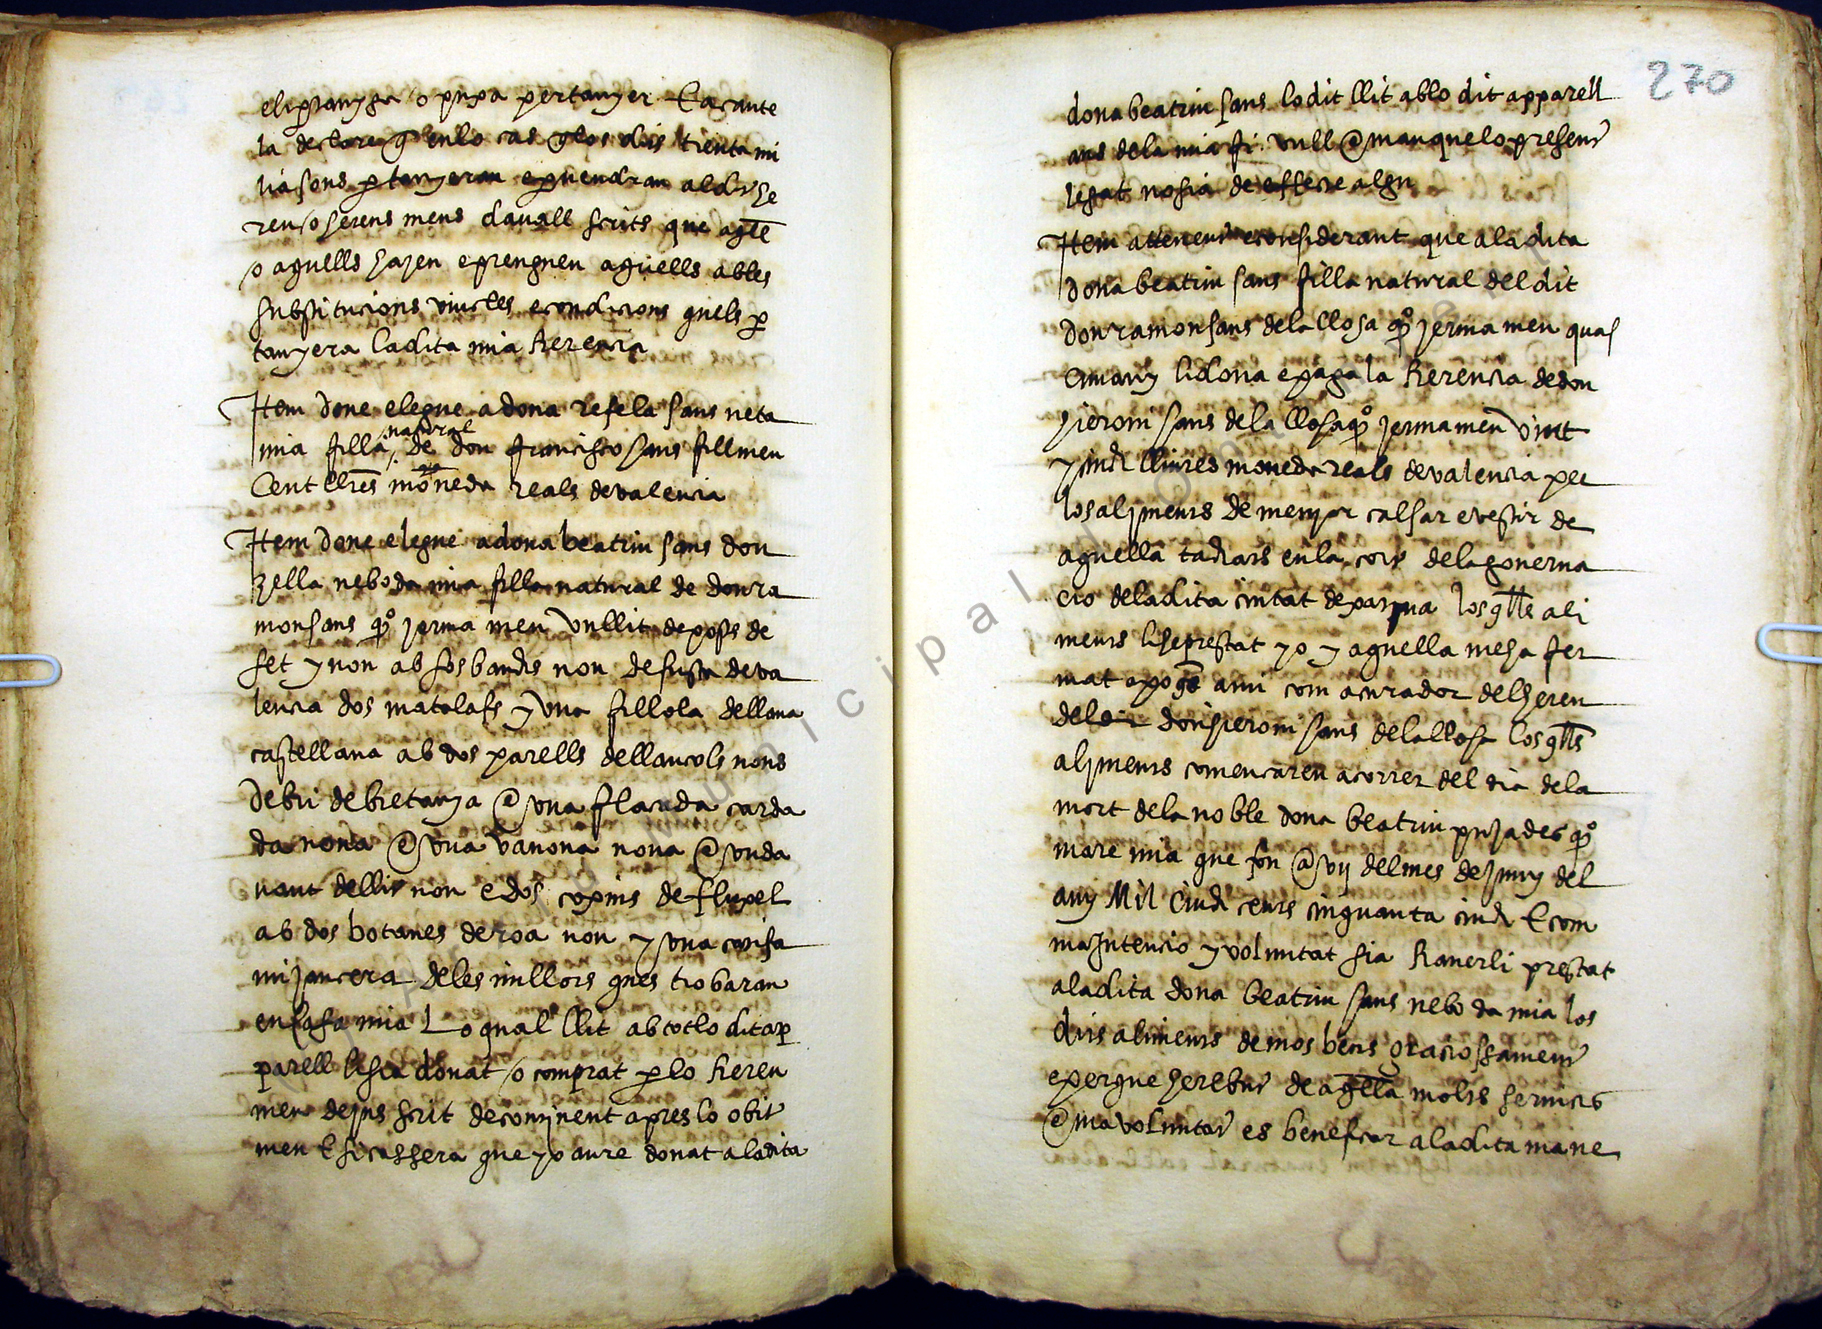 elipertanyga o puxa pertanyer E a caute
la declare q en lo cas q los dits trenta mi
lia sous ptanyeran e pvendran al dit he
reu o hereus meus davall scrits que aqlle
o aquells hajen e prenguen aquells ab les
substitucions vincles e condicions quels p
tanyera la dita mia herencia
Item done e legue a dona refela sans neta
mia filla natural de don francisco sans fill meu
Cent llres moneda reals de valencia
Item done e legue a dona beatriu sans don
zella neboda mia filla natural de don ra
mon sans qº jerma meu un llit de posts de
set y nou ab sos bandis nou de fusta de va
lencia dos matalafs y una fillola de llana
castellana ab dos parells de llancols nous
de bri de bretanya @ una flacada carda
da nova @ una vanona nova @ un da
vant de llit nou e dos coxins de fluxel
ab dos botanes de roa nou y una confa
mijancera de les millors ques trobaran
en casa mia Lo qual llit ab tot lo dit ap
parell li sia donat o comprat p lo hereu
meu dejus scrit de continent apres lo obit
meu E si cas sera que yo aure donat a la dita
270
dona beatriu sans lo dit llit ab lo dit apparell
ans de la mia fi vull @ man que lo present
legat no sia de effecte algu
Item attenent e considerant que a la dita
dona beatriu sans filla natural del dit
don ramon sans de la llosa qº jerma meu quas
cun any li dona e paga la herencia de don
hieroni sans de la llosa qº jerma meu vint
y cinch lliures moneda reals de valencia per
los aliments de menjar calsar e vestir de
aquella tachats en la cort de la governa
cio de la dita ciutat de xativa los qlls ali
ments li he prestat yo y aquella me ha fer
mat apoqe a mi com a curador del hereu
del dit don hieroni sans de la llosa los qlls
aliments comencaren a correr del dia de la
mort de la noble dona beatriu pujades qº
mare mia que fon @ vij del mes de juny del
any Mil Cinch cents cinquanta cinch E com
ma intencio y voluntat sia haver li prestat
a la dita dona beatriu sans neboda mia los
dits aliments de mos bens graciossament
e perque he rebut de aqlla molts servicis
@ ma voluntat es beneficar a la dita ma ne